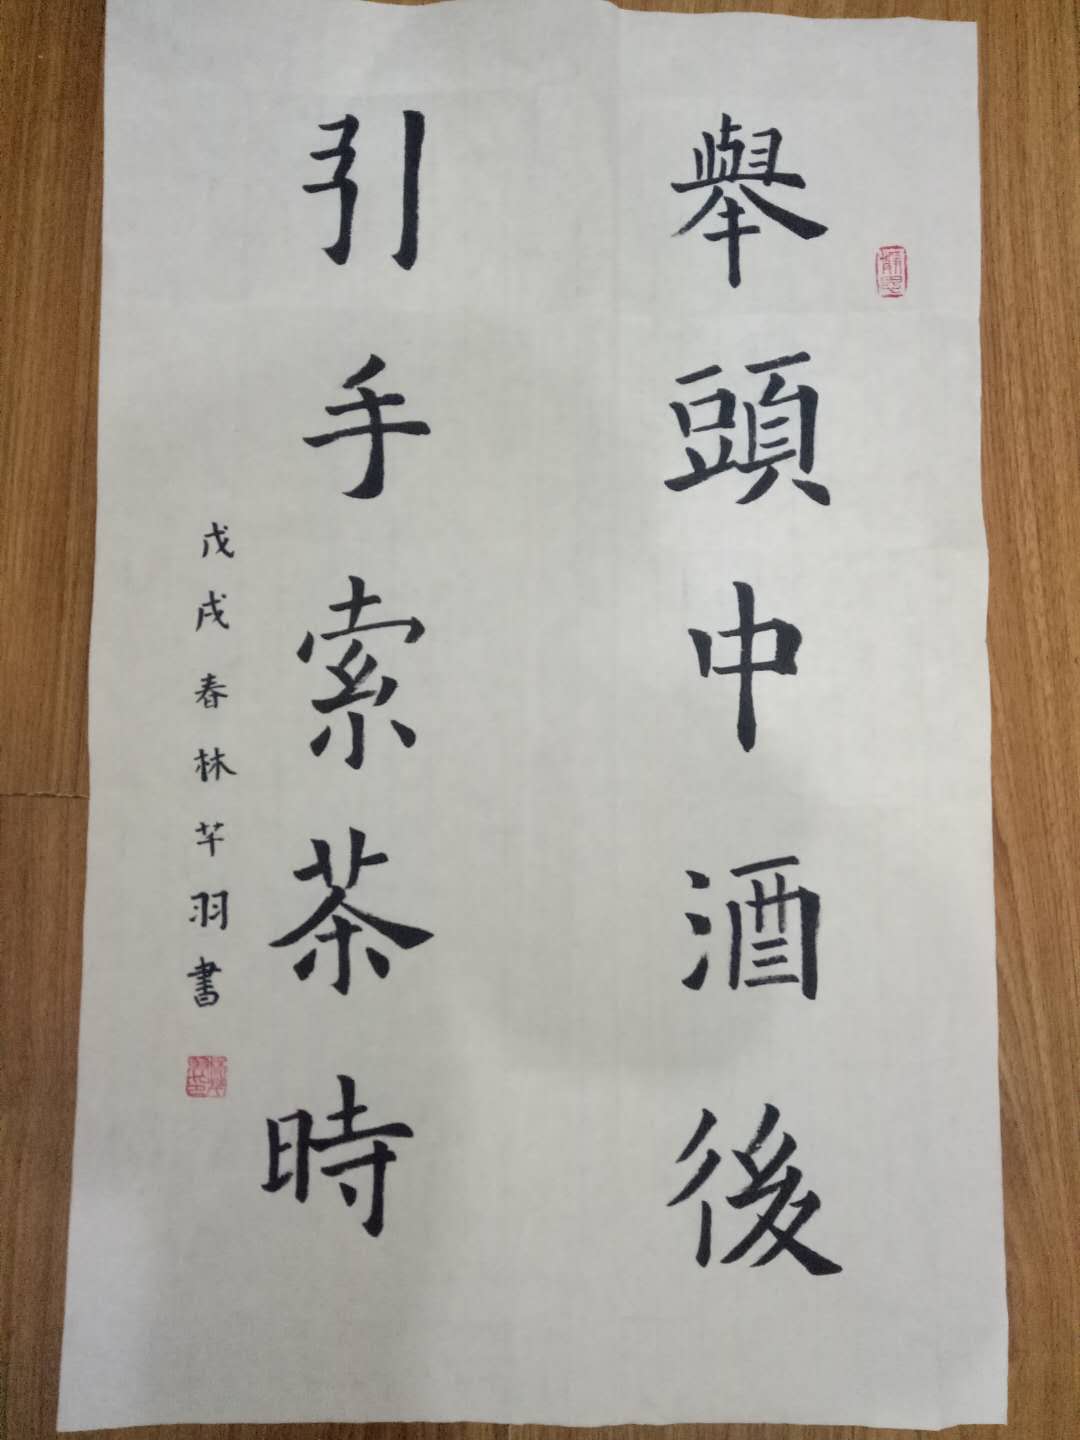 舉頭中酒後
引手索茶時
戊戌春林芊羽書